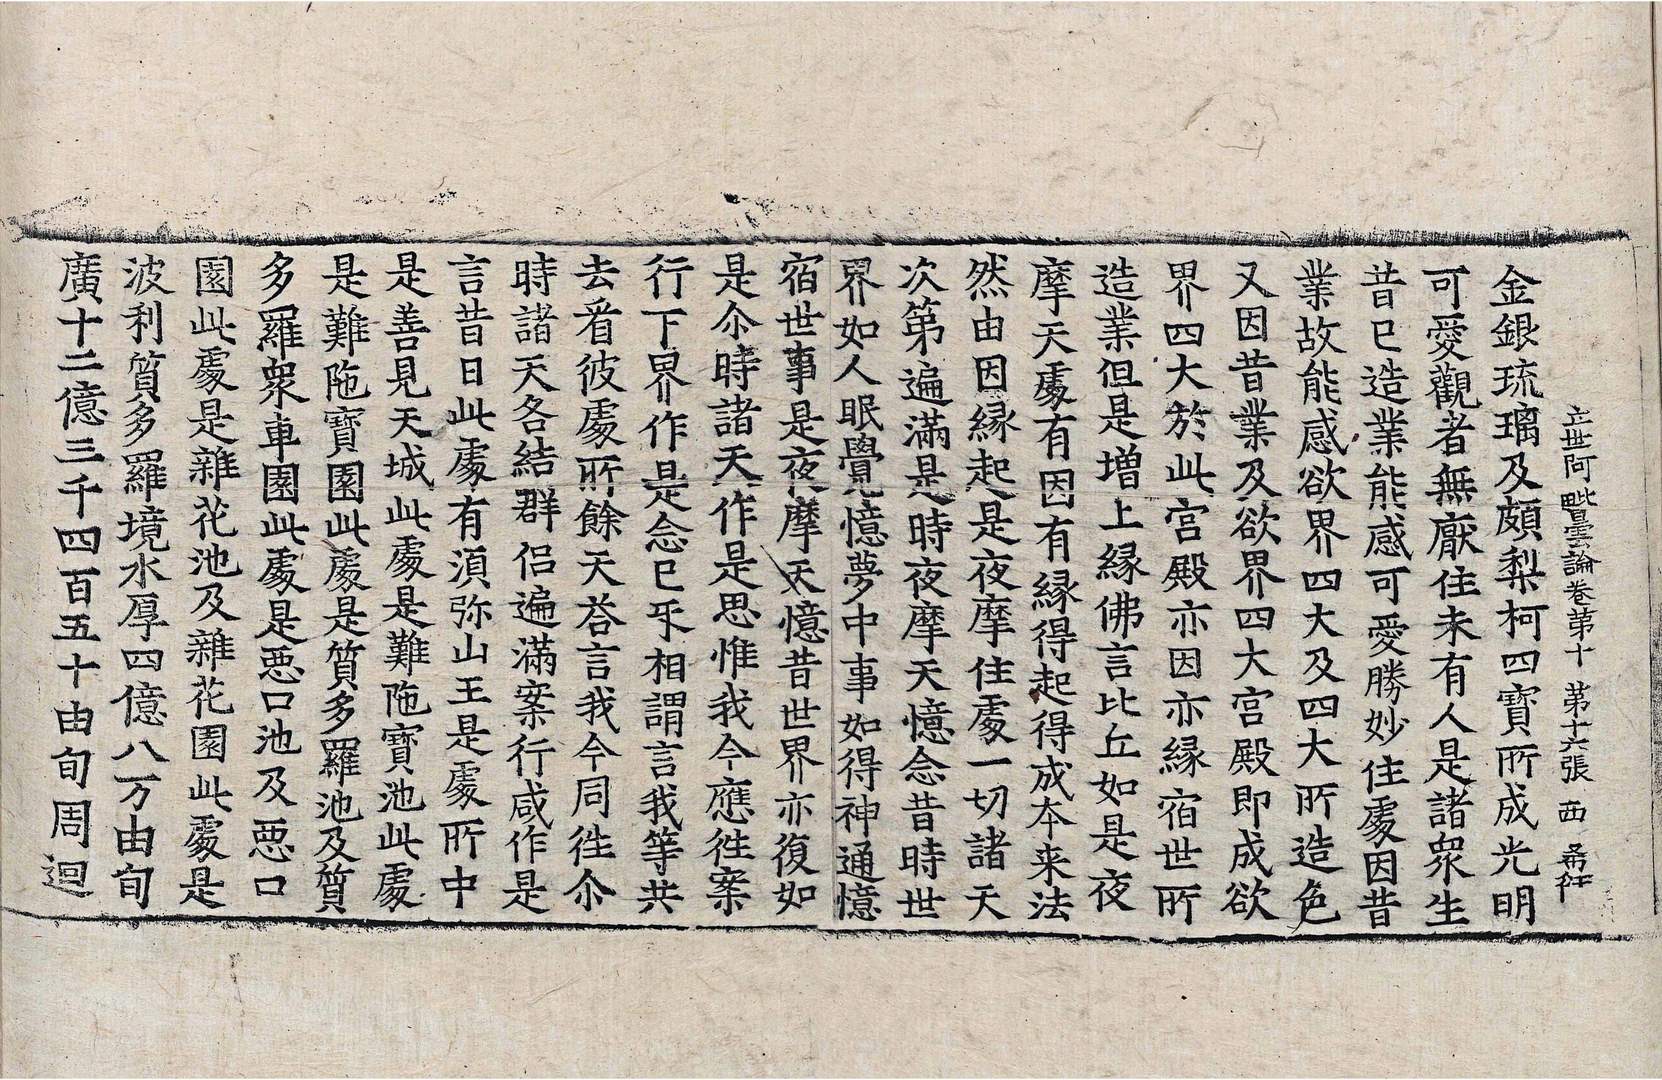 立世阿毗曇論卷第十 第十六張 西
金銀琉璃及頗梨柯四寶所成光明
可愛觀者無厭住未有人是諸衆生
昔已造業能感可愛勝妙住處因昔
業故能感欲界四大及四大所造色
又因昔業及欲界四大宮殿即成欲
界四大於此宮殿亦因亦緣宿世所
造業但是增上緣佛言比丘如是夜
摩天處有因有緣得起得成本来法
然由因緣起是夜摩住處一切諸天
次第遍滿是時夜摩天憶念昔時世
界如人眠覺憶夢中事如得神通憶
宿世事是夜摩天憶昔世界亦復如
是尒時諸天作是思惟我今應徃案
行下界作是念已𠃨相謂言我等共
去看彼處所餘天荅言我今同徃尒
時諸天各結群侣遍滿案行咸作是
言昔日此處有須弥山王是處所中
是善見天城此處是難陁寶池此處
是難陁寶園此處是質多羅池及質
多羅衆車園此處是惡口池及惡口
園此處是雜花池及雜花園此處是
波利質多羅境水厚四億八万由旬
廣十二億三千四百五十由旬周迴